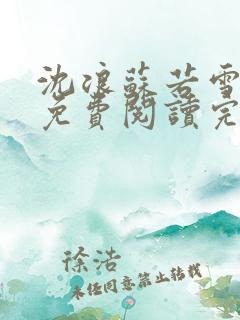 沈浪蘇若雪
免費閱讀完
徐浩
未经同意禁止转载